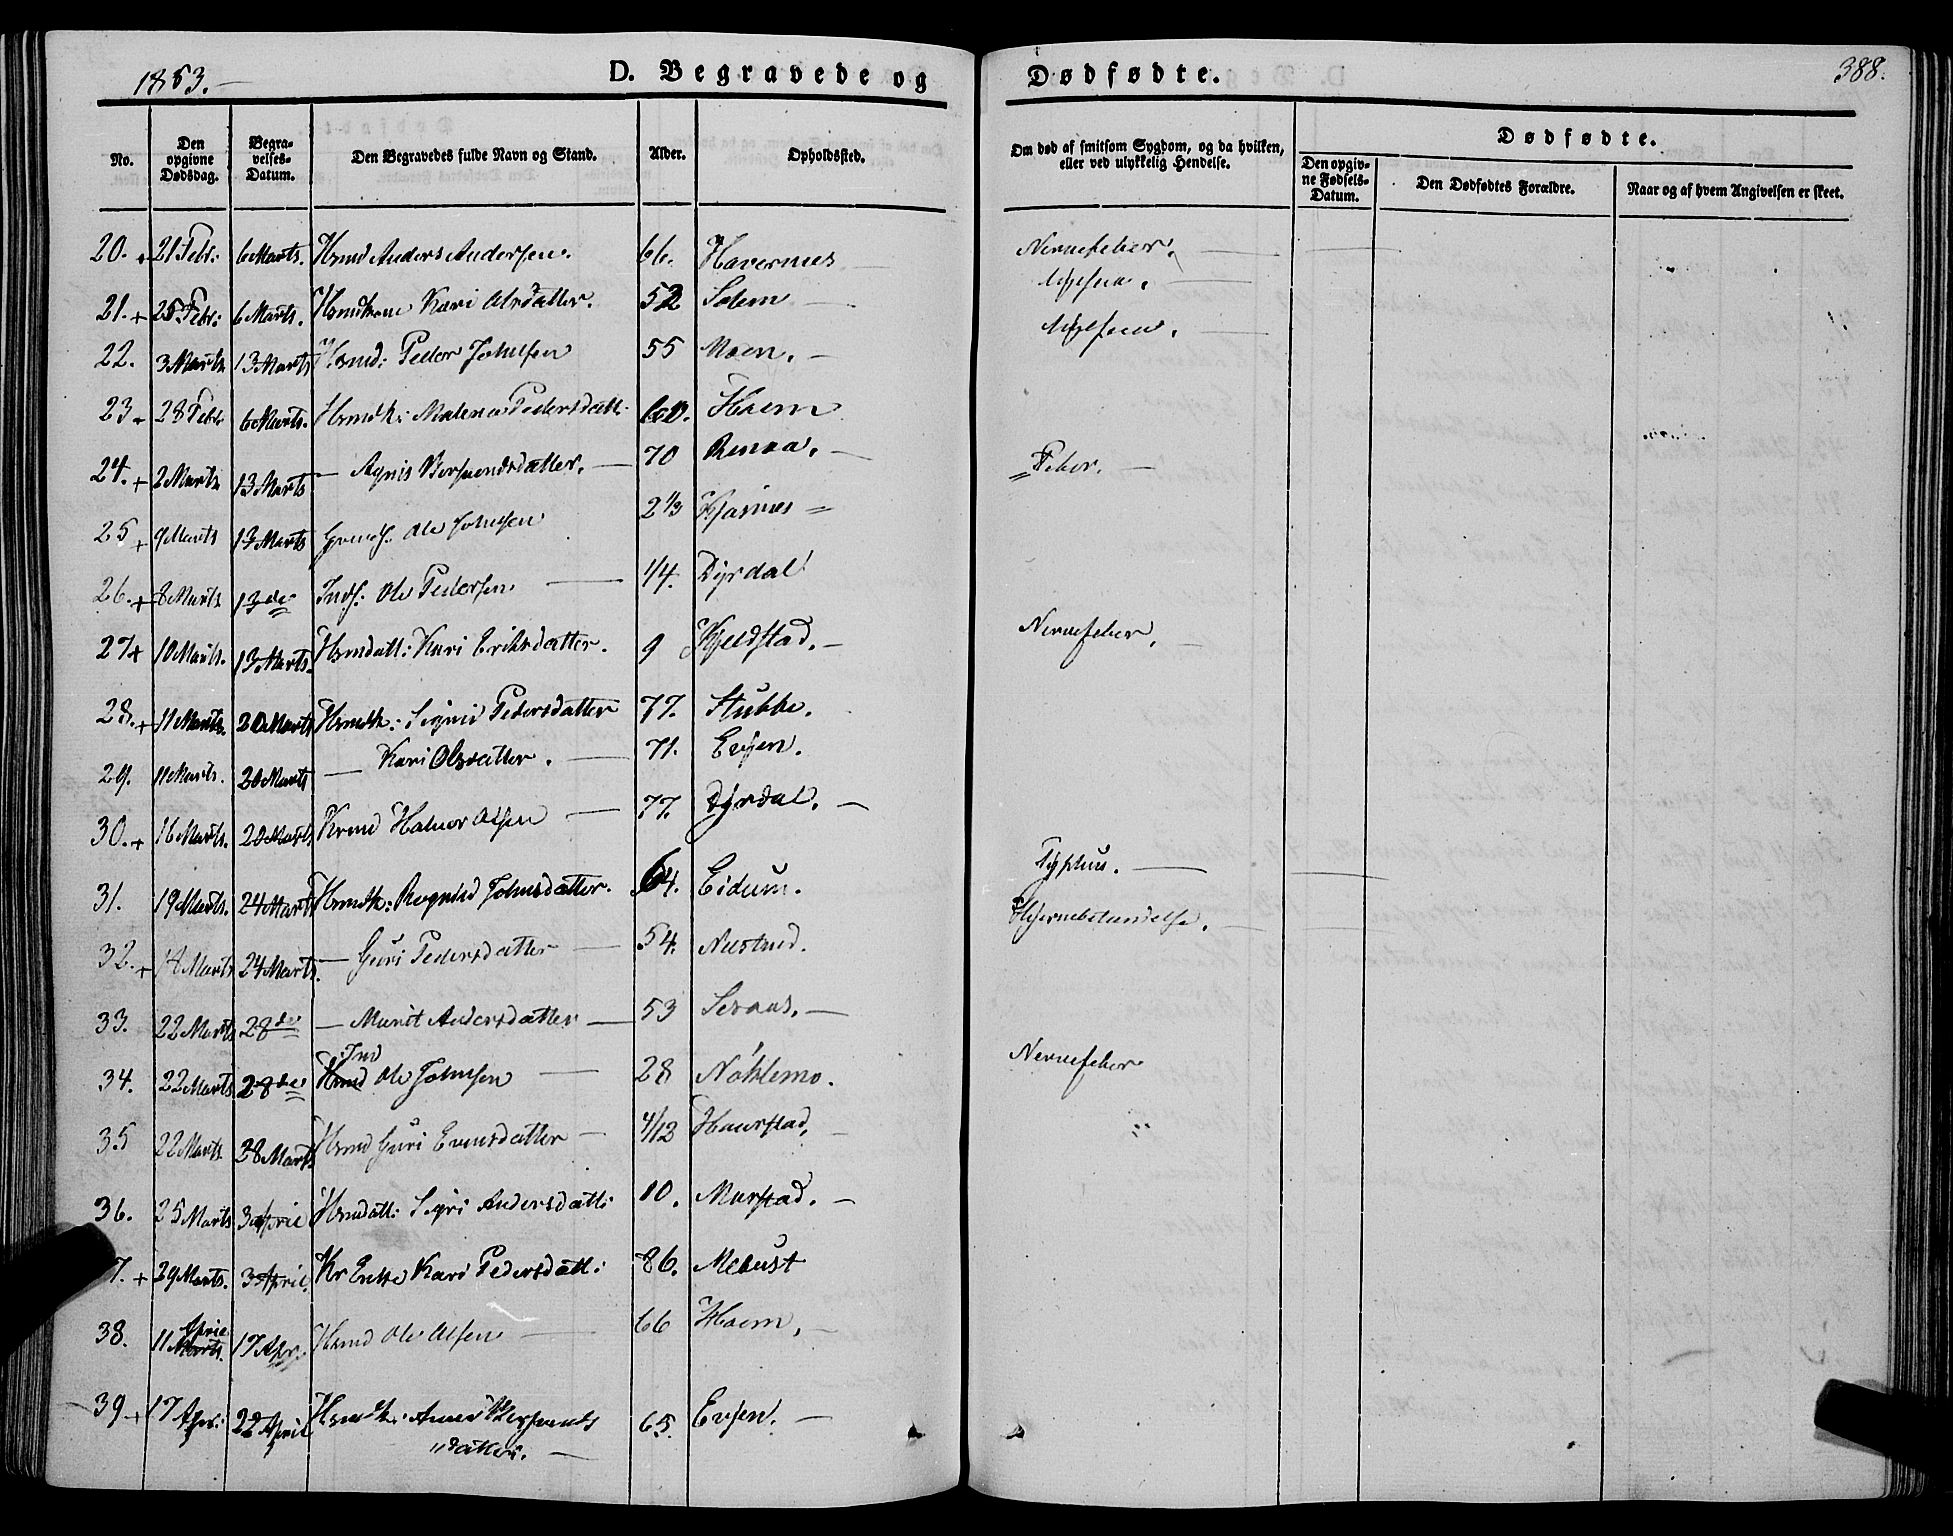 1853.
D. Begravede og
Dødfødte.
388.
No.
Den opgivne Dødsdag.
Begravelses-Datum.
Den Begravedes fulde Navn og Stand.
Alder.
Opholdssted.
Om død af smitsom Sygdom, og da hvilken, eller ved ulykkelig Hendelse.
Dødfødte.
Den opgivne Fødsels-Datum.
Den Dødfødtes Forældre.
Naar og af hvem Angivelsen er skeet.
20. + 21 Febr: 6 Marts. Hsmd Anders Andersen. 66. Havernes Nervefeber.
21. + 25 Febr: 6 Marts. Hsmdkone Kari Olsdatter. 52 Salem
22. 3 Marts 13 Marts Hsmd: Peder Johnsen 55 Moen.
23. 28 Febr 6 Marts. Hsmdk: Malena Pedersdatt. 60. Haem
24. + 2 Marts 13 Marts — Agnis 70 Renaa. Feber.
25 + 9 Marts 13 Marts Ole Johnsen 2 1/3
26. + 8 Marts 13de Inds. Ole Pedersen 1/4. Dyrdal
27 + 10 Marts. 13 Marts. Hsmdatt: Kari Eriksdatter. 9 Kjeldstad. Nervefeber.
28. + 11 Marts. 20 Marts Hsmdk: Sigri Pedersdatter 77. Stubbe.
29. 11 Marts. 20 Marts — Kari Olsdatter. 71. Evjen.
30. + 16 Marts. 20 Marts Krmd Halvor Olsen 77. Dyrdal.
31. 19 Marts. 24 Marts Hsmdk: Ragnild Johnsdatter. 64. Eidum. Typhus.
32. + 14 Marts 24 Marts. — Guri Pedersdatter 54. Nustad. Hjernebetændelse.
33. 22 Marts 28de — Marit Andersdatter 53 Seraas.
34. 22 Marts 28de Ind Ole Johnsen 28 Nøklemo. Nervefeber
35 22 Marts 28 Marts Hsmd Guri Evensdatter 4/12 Haarstad.
36. 25 Marts 3 April Hsmdatt: Sigri Andersdatt: 10. Marstad.
7. + 29 Marts. 3 April. Kr Enke Kari Pedersdatt: 86. Mebust
38. 11 April 17 Apr. Hsmd Ole Olsen 66 Haem.
39 + 17 Apr: 22 April Hsmdk: 65. Evjen.
datter.